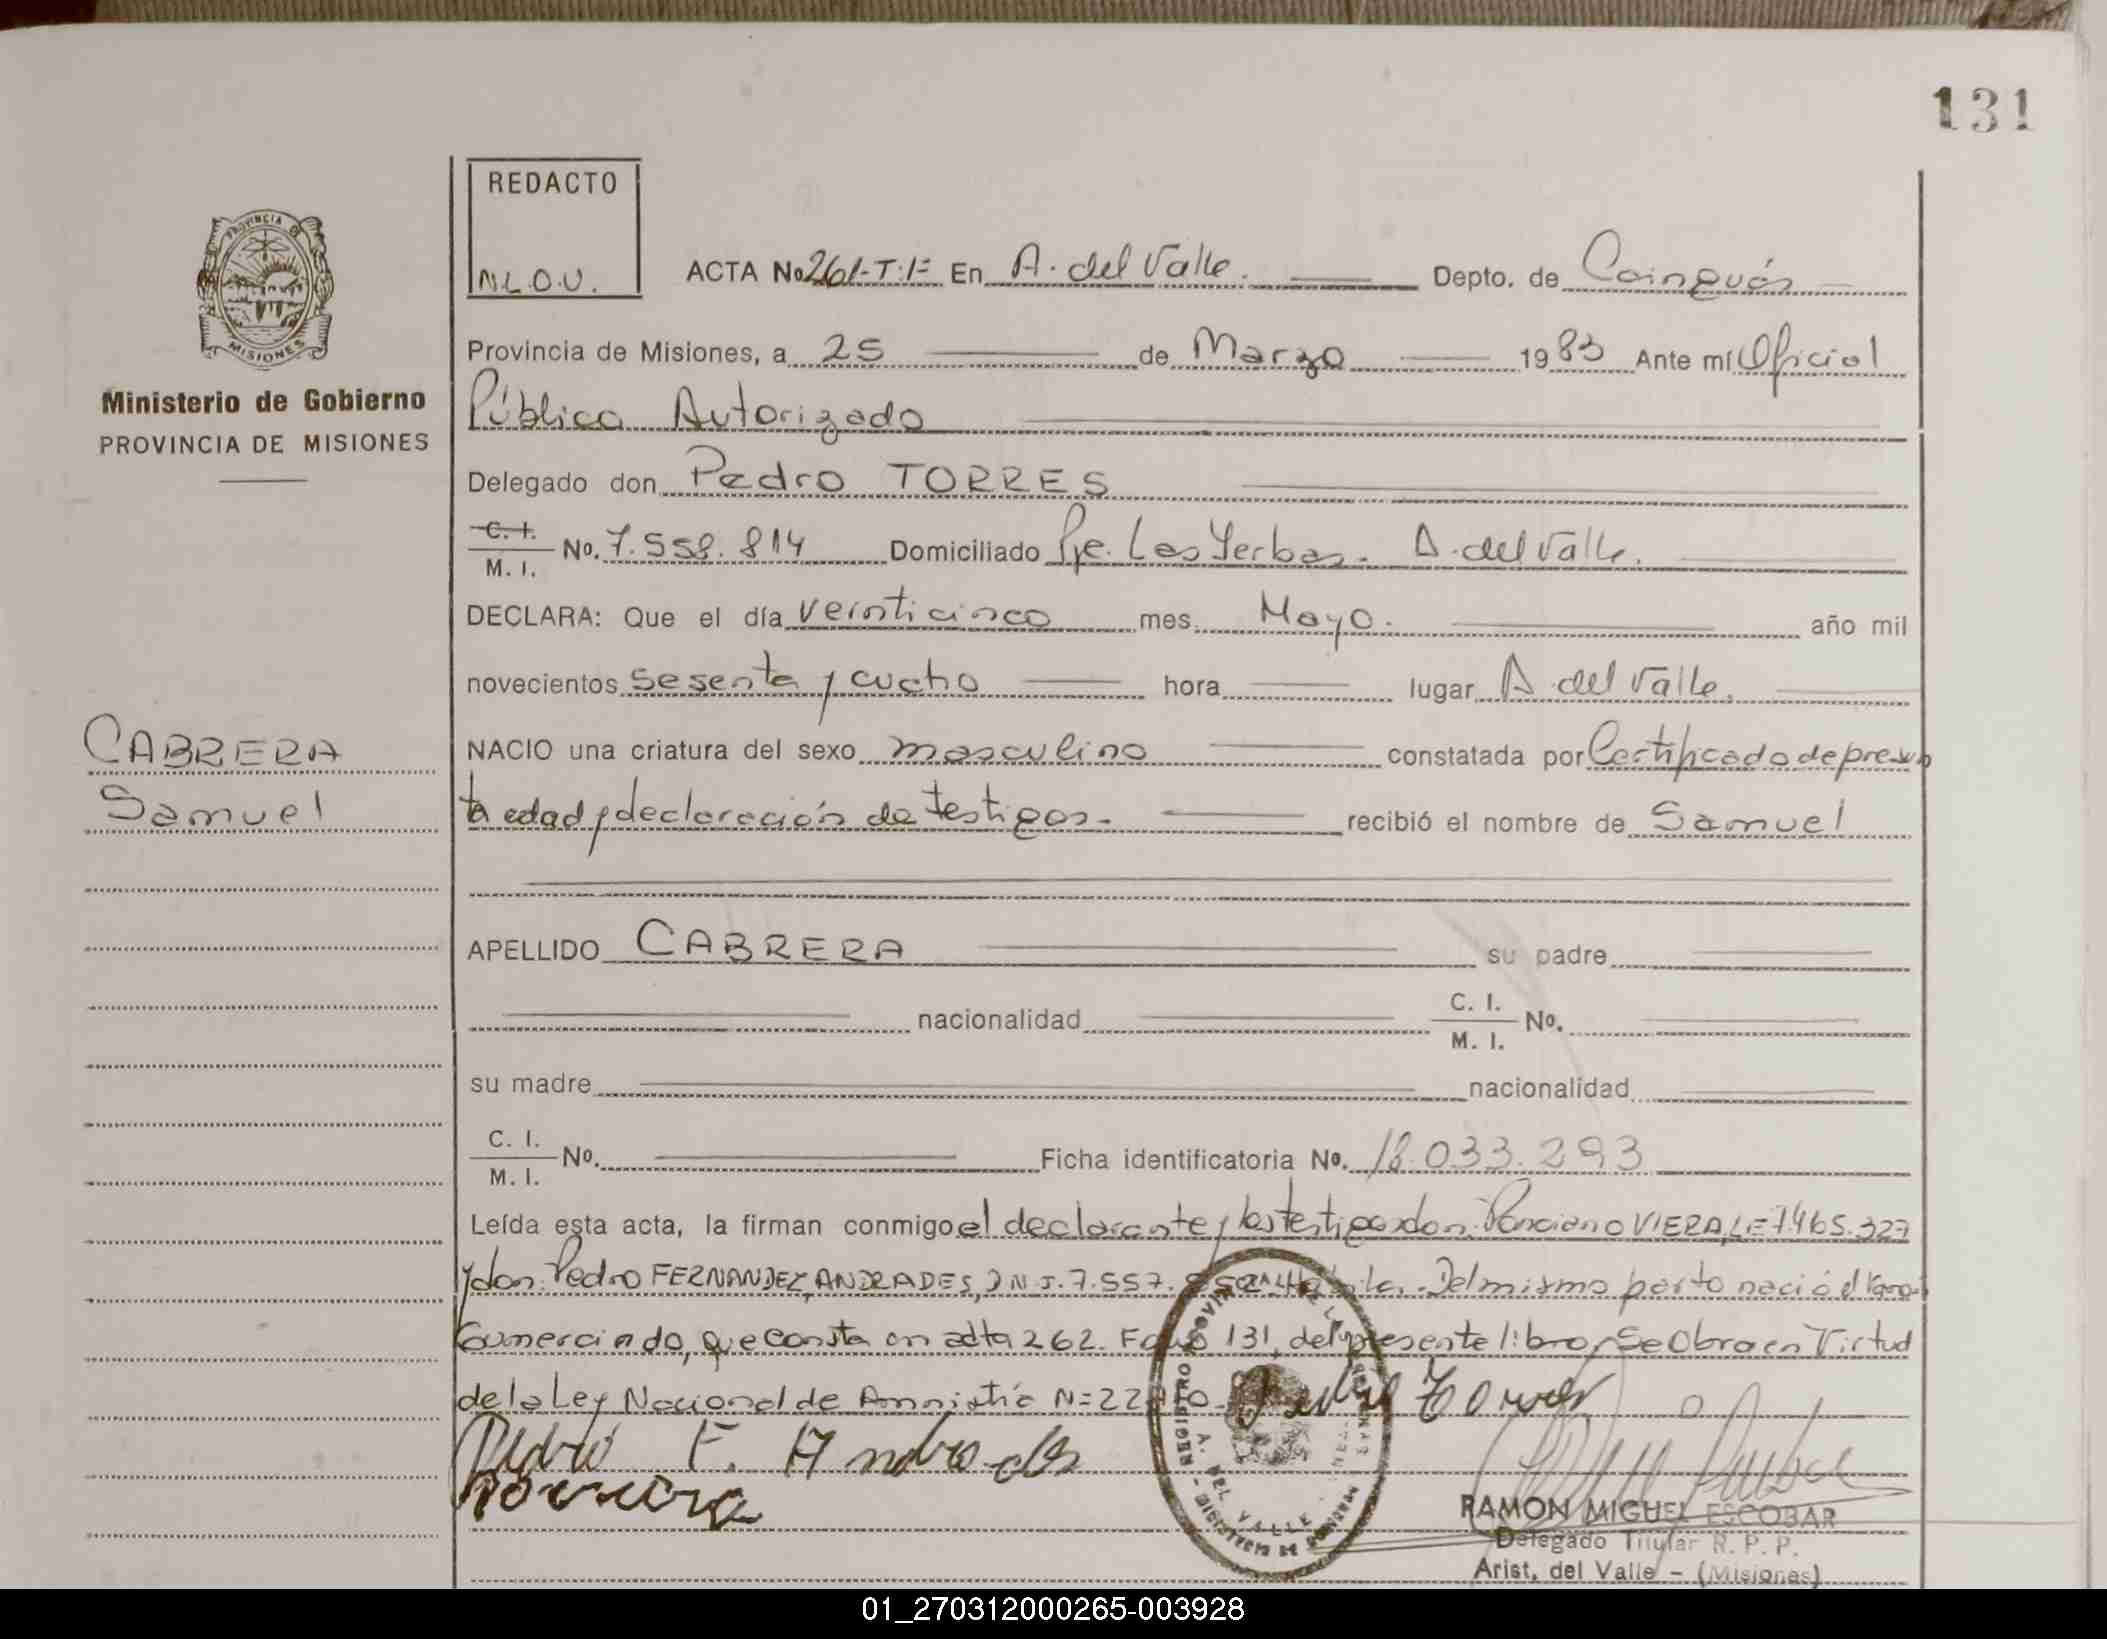 131
REDACTO
N.L.O.V.
ACTA No 261-T:I= En A. del Valle. Depto. de Cainguás
PROVINCIA DE
MISIONES
Ministerio de Gobierno
PROVINCIA DE MISIONES
Provincia de Misiones, a 25 de Marzo 1983 Ante mí Oficial
Público Autorizado
Delegado don Pedro TORRES
C. I.
M. I.
No. 7.558.814 Domiciliado Pje. Las Yerbas. A. del Valle.
DECLARA: Que el día veinticinco mes Mayo. año mil
novecientos sesenta y cucho hora lugar A. del Valle.
CABRERA
Samuel
NACIO una criatura del sexo masculino constatada por Certificado de presun
ta edad y declaración de testigos. recibió el nombre de Samuel
APELLIDO CABRERA su padre
nacionalidad C. I.
M. I. No.
su madre nacionalidad
C. I.
M. I. No. Ficha identificatoria No. 18.033.293
Leída esta acta, la firman conmigo el declarante y los testigos don: Ponciano VIERA, LE=7.465.327
y don: Pedro FERNANDEZ, ANDRADES, D.N.I. 7.557. Del mismo parto nació el
Gumercindo, que consta en acta 262. Folio 131, del presente libro, Se Obra en Virtud
de la Ley Nacional de Amnistía N=
Pedro Torres
Pedro F. Andrades
REGISTRO PROVINCIAL DE LAS PERSONAS
A. DEL VALLE
MINISTERIO DE GOBIERNO
RAMON MIGUEL ESCOBAR
Delegado Titular R. P. P.
Arist. del Valle - (Misiones)
01_270312000265-003928